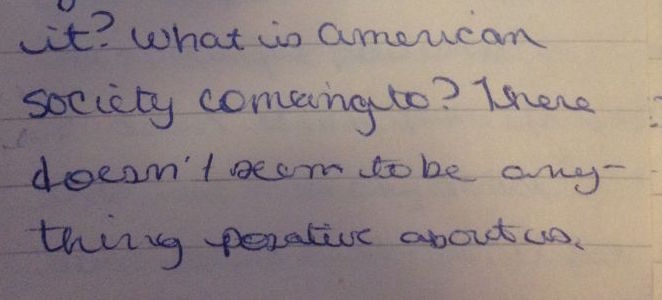 it? What is american
society comeing to? There
doesn't seem to be any-
thing posative about us.